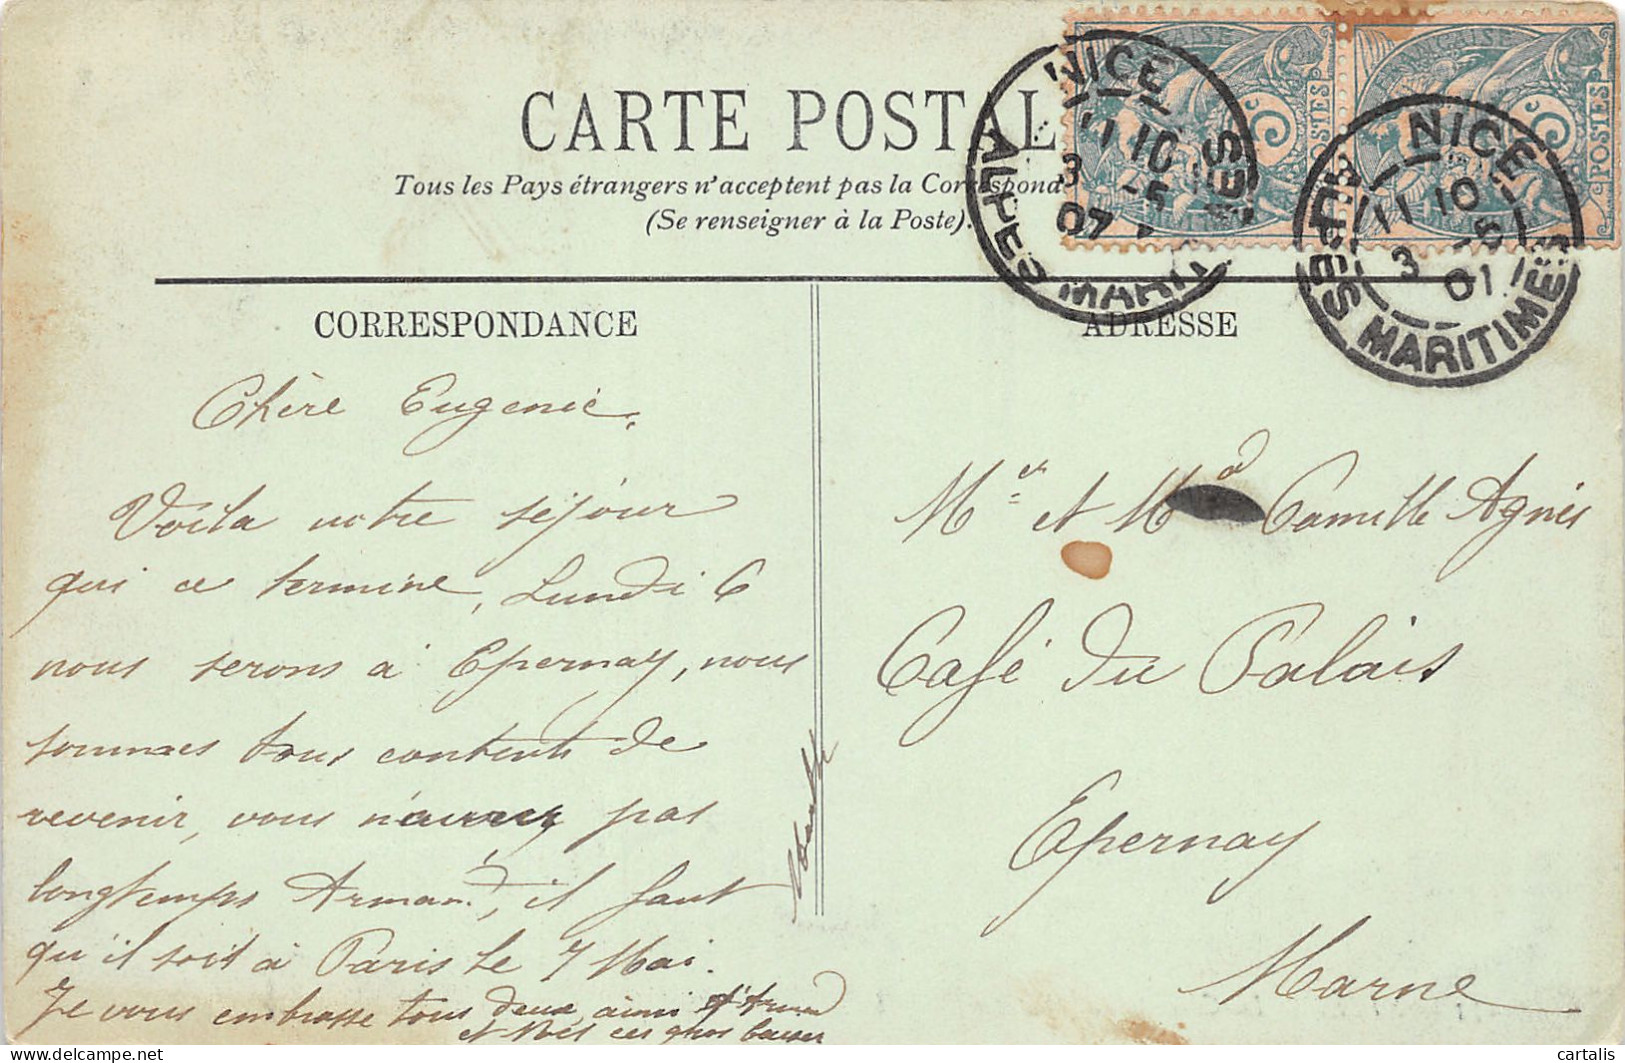 CARTE POSTAL
Tous les Pays étrangers n'acceptent pas la Correspond
(Se renseigner à la Poste).
NICE
ALPES MARIT ES
11 10
3 -5
07
FRANÇAISE
5c
POSTES
NICE
ALPES MARITIMES
11 10
3 -5
07
5c
POSTES
CORRESPONDANCE
ADRESSE
Chère Eugenie,
Voila notre séjour
qui ce termine, Lundi 6
nous serons à Epernay, nous
sommes tous contents de
revenir, vous n'aurez pas
longtemps Armand, il faut
qu'il soit à Paris le 7 Mai.
Je vous embrasse tous deux, ainsi d'Armand
et Noël ces gros baiser
Mr et Md Camille Agnès
Café du Palais
Epernay
Marne
cartalis